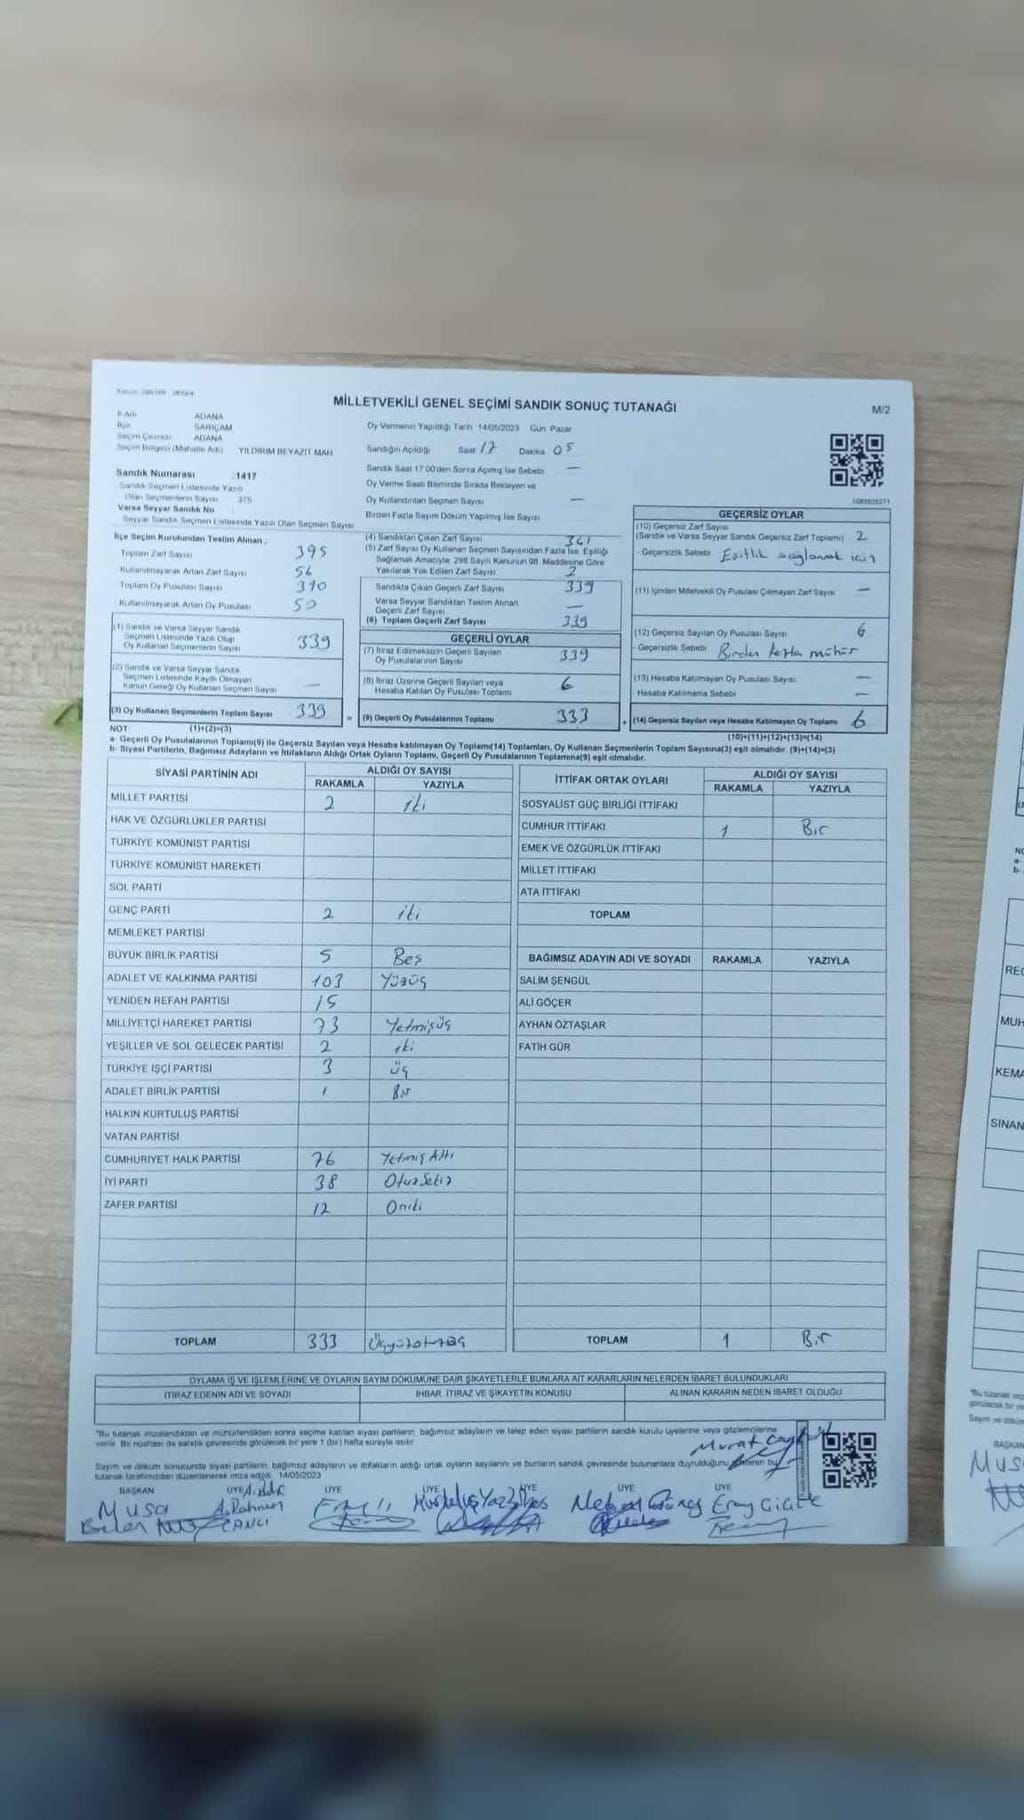 MİLLETVEKİLİ GENEL SEÇİMİ SANDIK SONUÇ TUTANAĞI
M/2
İl Adı ADANA
İlçe SARIÇAM
Seçim Çevresi ADANA
Seçim Bölgesi (Mahalle Adı) YILDIRIM BEYAZIT MAH
Oy Vermenin Yapıldığı Tarih 14/05/2023 Gün Pazar
Sandığın Açıldığı Saat 17 Dakika 05
Sandık Saat 17 00'den Sonra Açımış İse Sebebi —
Oy Verme Saati Bitiminde Sırada Bekleyen ve
Oy Kullandırılan Seçmen Sayısı —
Birden Fazla Sayım Döküm Yapılmış İse Sayısı
Sandık Numarası :1417
Sandık Seçmen Listesinde Yazılı
Olan Seçmenlerin Sayısı 375
Varsa Seyyar Sandık No
Seyyar Sandık Seçmen Listesinde Yazılı Olan Seçmen Sayısı
İlçe Seçim Kurulundan Teslim Alınan ;
Toplam Zarf Sayısı 395
Kullanılmayarak Artan Zarf Sayısı 56
Toplam Oy Pusulası Sayısı 390
Kullanılmayarak Artan Oy Pusulası 50
(1) Sandık ve Varsa Seyyar Sandık
Seçmen Listesinde Yazılı Olup
Oy Kullanan Seçmenlerin Sayısı 339
(2) Sandık ve Varsa Seyyar Sandık
Seçmen Listesinde Kaydı Olmayan
Kanun Gereği Oy Kullanan Seçmen Sayısı —
(3) Oy Kullanan Seçmenlerin Toplam Sayısı 339 =
(4) Sandıktan Çıkan Zarf Sayısı 341
(5) Zarf Sayısı Oy Kullanan Seçmen Sayısından Fazla İse, Eşitliği
Sağlamak Amacıyla, 298 Sayılı Kanunun 98. Maddesine Göre
Yakılarak Yok Edilen Zarf Sayısı 2
Sandıkta Çıkan Geçerli Zarf Sayısı 339
Varsa Seyyar Sandıktan Teslim Alınan
Geçerli Zarf Sayısı —
(6) Toplam Geçerli Zarf Sayısı 339
GEÇERLİ OYLAR
(7) İtiraz Edilmeksizin Geçerli Sayılan
Oy Pusulalarının Sayısı 339
(8) İtiraz Üzerine Geçerli Sayılan veya
Hesaba Katılan Oy Pusulası Toplamı 6
(9) Geçerli Oy Pusulalarının Toplamı 333 +
GEÇERSİZ OYLAR
(10) Geçersiz Zarf Sayısı
(Sandık ve Varsa Seyyar Sandık Geçersiz Zarf Toplamı) 2
- Geçersizlik Sebebi Eşitlik sağlamak icin
(11) İçinden Milletvekili Oy Pusulası Çıkmayan Zarf Sayısı —
(12) Geçersiz Sayılan Oy Pusulası Sayısı 6
- Geçersizlik Sebebi Birden fazla mühür
(13) Hesaba Katılmayan Oy Pusulası Sayısı —
Hesaba Katılmama Sebebi —
(14) Geçersiz Sayılan veya Hesaba Katılmayan Oy Toplamı 6
NOT: (1)+(2)=(3)
(10)+(11)+(12)+(13)=(14)
a- Geçerli Oy Pusulalarının Toplamı(9) ile Geçersiz Sayılan veya Hesaba katılmayan Oy Toplamı(14) Toplamları, Oy Kullanan Seçmenlerin Toplam Sayısına(3) eşit olmalıdır. (9)+(14)=(3)
b- Siyasi Partilerin, Bağımsız Adayların ve İttifakların Aldığı Ortak Oyların Toplamı, Geçerli Oy Pusulalarının Toplamına(9) eşit olmalıdır.
SİYASİ PARTİNİN ADI ALDIĞI OY SAYISI
RAKAMLA YAZIYLA
MİLLET PARTİSİ 2 iki
HAK VE ÖZGÜRLÜKLER PARTİSİ
TÜRKİYE KOMÜNİST PARTİSİ
TÜRKİYE KOMÜNİST HAREKETİ
SOL PARTİ
GENÇ PARTİ 2 iki
MEMLEKET PARTİSİ
BÜYÜK BİRLİK PARTİSİ 5 Beş
ADALET VE KALKINMA PARTİSİ 103 Yüzüç
YENİDEN REFAH PARTİSİ 15
MİLLİYETÇİ HAREKET PARTİSİ 73 Yetmişüç
YEŞİLLER VE SOL GELECEK PARTİSİ 2 iki
TÜRKİYE İŞÇİ PARTİSİ 3 üç
ADALET BİRLİK PARTİSİ 1 Bir
HALKIN KURTULUŞ PARTİSİ
VATAN PARTİSİ
CUMHURİYET HALK PARTİSİ 76 Yetmiş Altı
İYİ PARTİ 38 Otuzsekiz
ZAFER PARTİSİ 12 Oniki
TOPLAM 333 Üçyüzotuzüç
İTTİFAK ORTAK OYLARI ALDIĞI OY SAYISI
RAKAMLA YAZIYLA
SOSYALİST GÜÇ BİRLİĞİ İTTİFAKI
CUMHUR İTTİFAKI 1 Bir
EMEK VE ÖZGÜRLÜK İTTİFAKI
MİLLET İTTİFAKI
ATA İTTİFAKI
TOPLAM
BAĞIMSIZ ADAYIN ADI VE SOYADI RAKAMLA YAZIYLA
SALİM ŞENGÜL
ALİ GÖÇER
AYHAN ÖZTAŞLAR
FATİH GÜR
TOPLAM 1 Bir
OYLAMA İŞ VE İŞLEMLERİNE VE OYLARIN SAYIM DÖKÜMÜNE DAİR ŞİKAYETLERLE BUNLARA AİT KARARLARIN NELERDEN İBARET BULUNDUKLARI
İTİRAZ EDENİN ADI VE SOYADI İHBAR, İTİRAZ VE ŞİKAYETİN KONUSU ALINAN KARARIN NEDEN İBARET OLDUĞU
"Bu tutanak imzalandıktan ve mühürlendikten sonra seçime katılan siyasi partilerin, bağımsız adayların ve talep eden siyasi partilerin sandık kurulu üyelerine veya gözlemcilerine
verilir. Bir nüshası da sandık çevresinde görülecek bir yere 1 (bir) hafta süreyle asılır
Murat
Sayım ve döküm sonucunda siyasi partilerin, bağımsız adayların ve ittifakların aldığı ortak oyların sayılarını ve bunların sandık çevresinde bulunanlara duyrulduğunu gösteren bu
tutanak tarafımızdan düzenlenerek imza edildi. 14/05/2023
BAŞKAN ÜYE ÜYE ÜYE ÜYE ÜYE ÜYE
Musa A.Rahman Eray Gi
CANLI
REC
MUH
KEMA
SİNAN
BAŞKAN
Musa